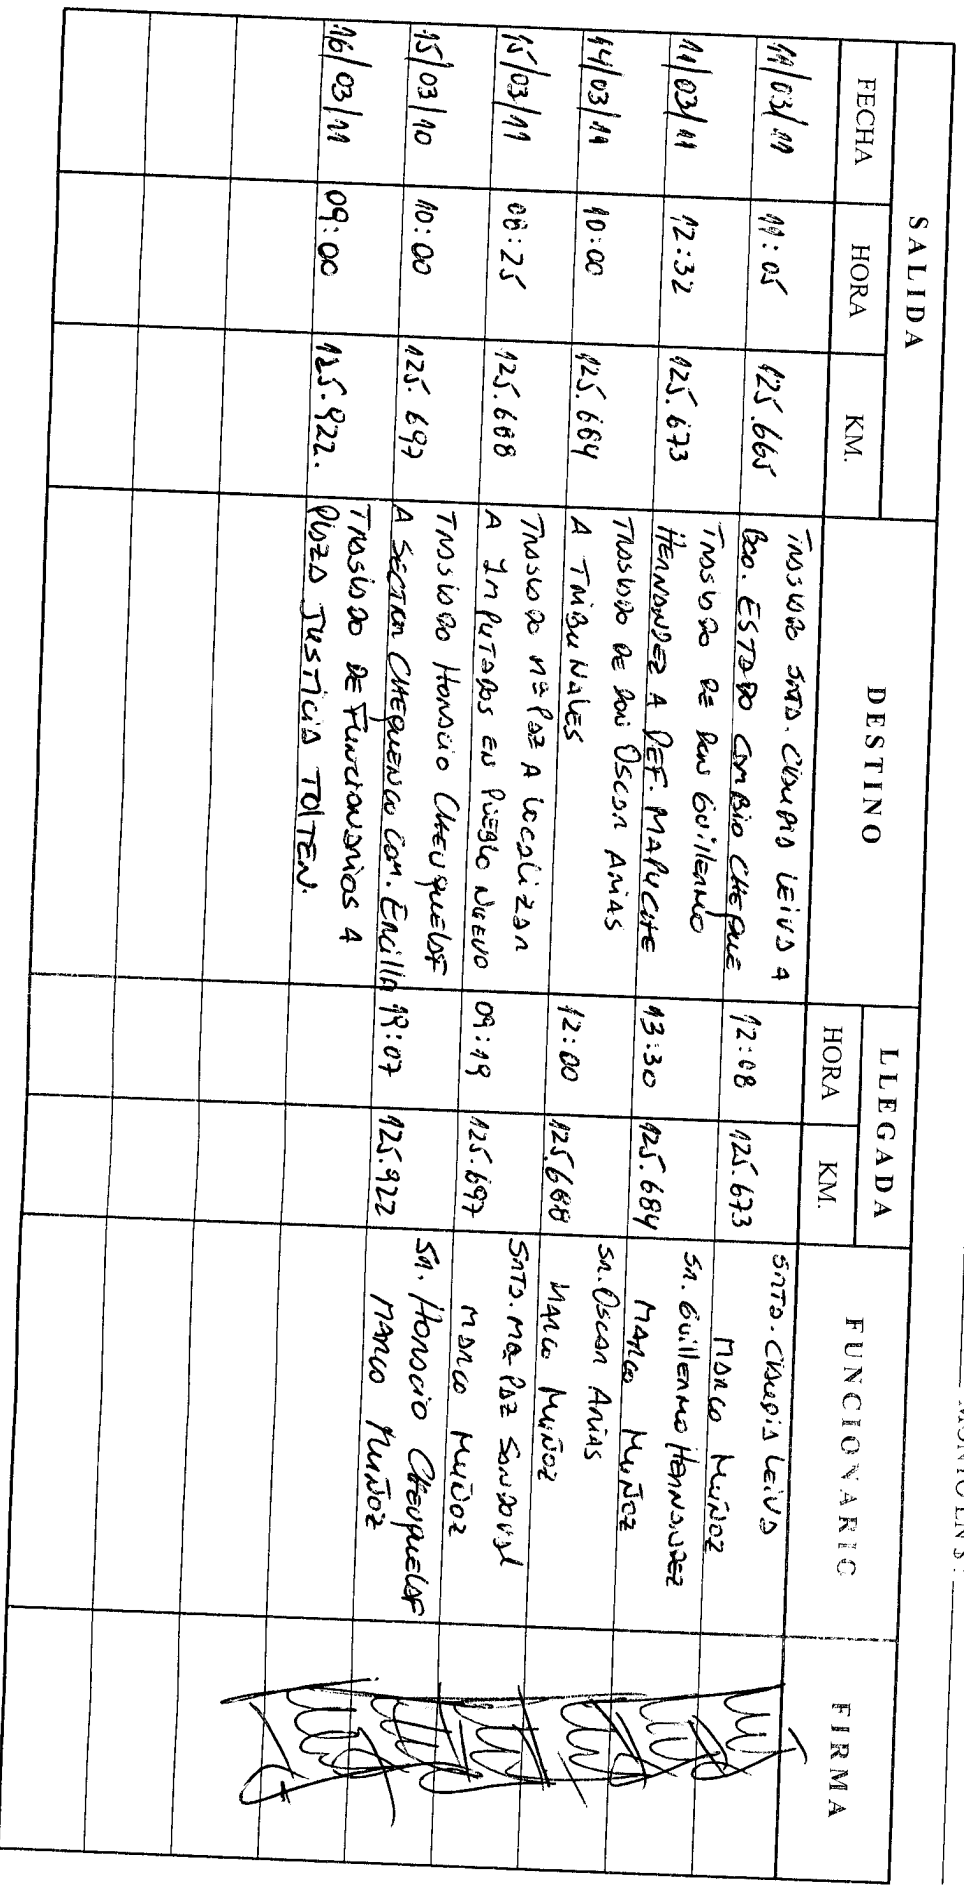 MONTO EN $:
SALIDA DESTINO LLEGADA FUNCIONARIO FIRMA
FECHA HORA KM. HORA KM.
11/03/11 11:05 125.665 Traslado Srta. Claudia Leiva A
Bco. ESTADO Cambio Cheque 12:08 125.673 Srta. Claudia Leiva
Marco Muñoz
11/03/11 12:32 125.673 Traslado de Don Guillermo
Hernandez A DEF. MAPUCHE 13:30 125.684 Sr. Guillermo Hernandez
Marco Muñoz
14/03/11 10:00 125.684 Traslado de Don Oscar Arias
A Tribunales 12:00 125.688 Sr. Oscar Arias
Marco Muñoz
15/03/11 08:25 125.688 Traslado Mª Paz A localizar
A Imputados en Pueblo Nuevo 09:19 125.697 Srta. Ma Paz Sandoval
Marco Muñoz
15/03/10 10:00 125.697 Traslado Horacio Cheuquelaf
A Sector Chequenco Com. Ercilla 19:07 125.922 Sr. Horacio Cheuquelaf
Marco Muñoz
16/03/11 09:00 125.922. Traslado de Funcionarios A
Plaza Justicia Tolten.